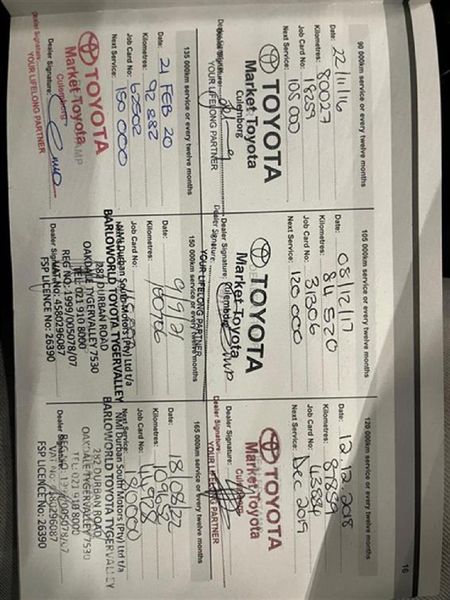 90 000km service or every twelve months
Date: 22/11/16
Kilometres: 80027
Job Card No: 18259
Next Service: 105 000
TOYOTA
Market Toyota
Culemborg
Dealer Signature:
YOUR LIFELONG PARTNER
105 000km service or every twelve months
Date: 08/12/17
Kilometres: 84 520
Job Card No: 31306
Next Service: 120 000
TOYOTA
Market Toyota
Culemborg
Dealer Signature:
YOUR LIFELONG PARTNER
120 000km service or every twelve months
Date: 12.12.2018
Kilometres: 87839
Job Card No: 43884
Next Service: Dec 2019
TOYOTA
Market Toyota
Culemborg
Dealer Signature:
YOUR LIFELONG PARTNER
135 000km service or every twelve months
Date: 21 FEB 20
Kilometres: 92 882
Job Card No: 67502
Next Service: 150 000
TOYOTA
Market Toyota
Culemborg
Dealer Signature:
YOUR LIFELONG PARTNER
150 000km service or every twelve months
Date: 01/9/21
Kilometres: 100706
Job Card No:
NMI Durban South Motors (Pty) Ltd t/a
BARLOWORLD TOYOTA TYGERVALLEY
282 DURBAN ROAD
OAKDALE TYGERVALLEY 7530
TEL: 021 910 8000
REG NO: 1999/005078/07
VAT NO: 4580296087
FSP LICENCE No: 26390
Dealer Signature:
165 000km service or every twelve months
Date: 18/08/22
Kilometres:
Job Card No:
Next Service:
NMI Durban South Motors (Pty) Ltd t/a
BARLOWORLD TOYOTA TYGERVALLEY
282 DURBAN ROAD
OAKDALE TYGERVALLEY 7530
TEL: 021 910 8000
REG NO: 1999/005078/07
VAT NO: 4580296087
FSP LICENCE No: 26390
Dealer Signature:
16